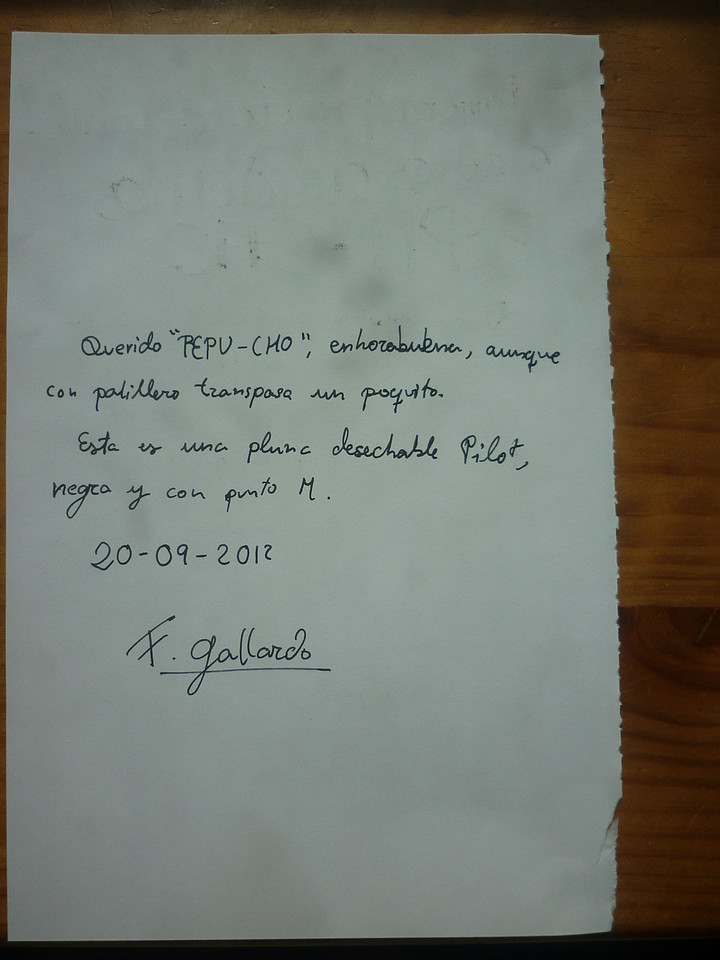 Querido "PEPU-CHO", enhorabuena, aunque
con palillero transpasa un poquito.
Esta es una pluma desechable Pilot,
negra y con punto M.
20-09-2012
F. Gallardo